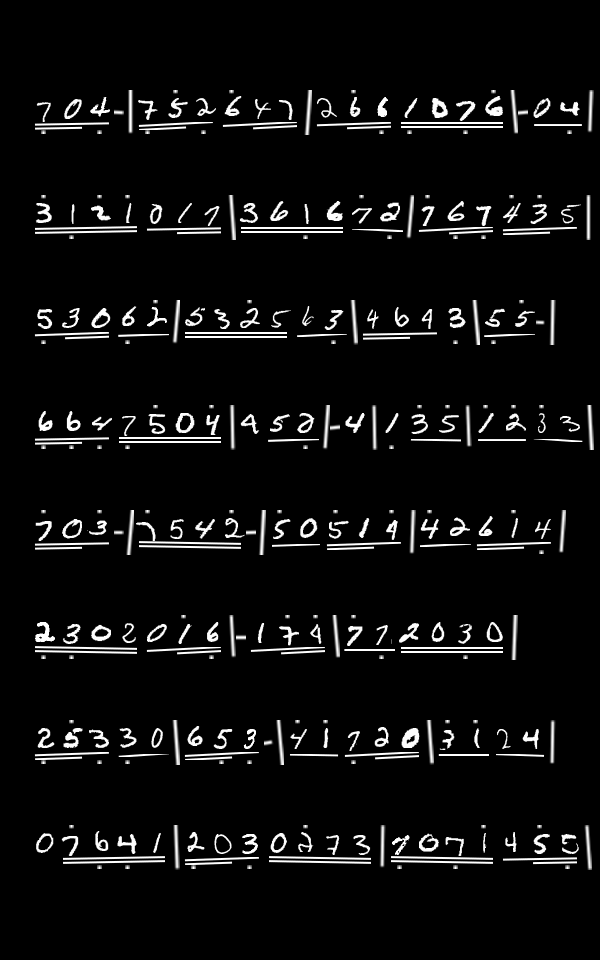 704-|752647|2661076|-04|
3121017|361672|767435|
53062|532563|4643|55-|
6647504|452-4|135|1233|
703-|7542-|50514|42614|
2302016|-174|772030|
25330|653-|41720|3124|
07641|2030273|7071455|